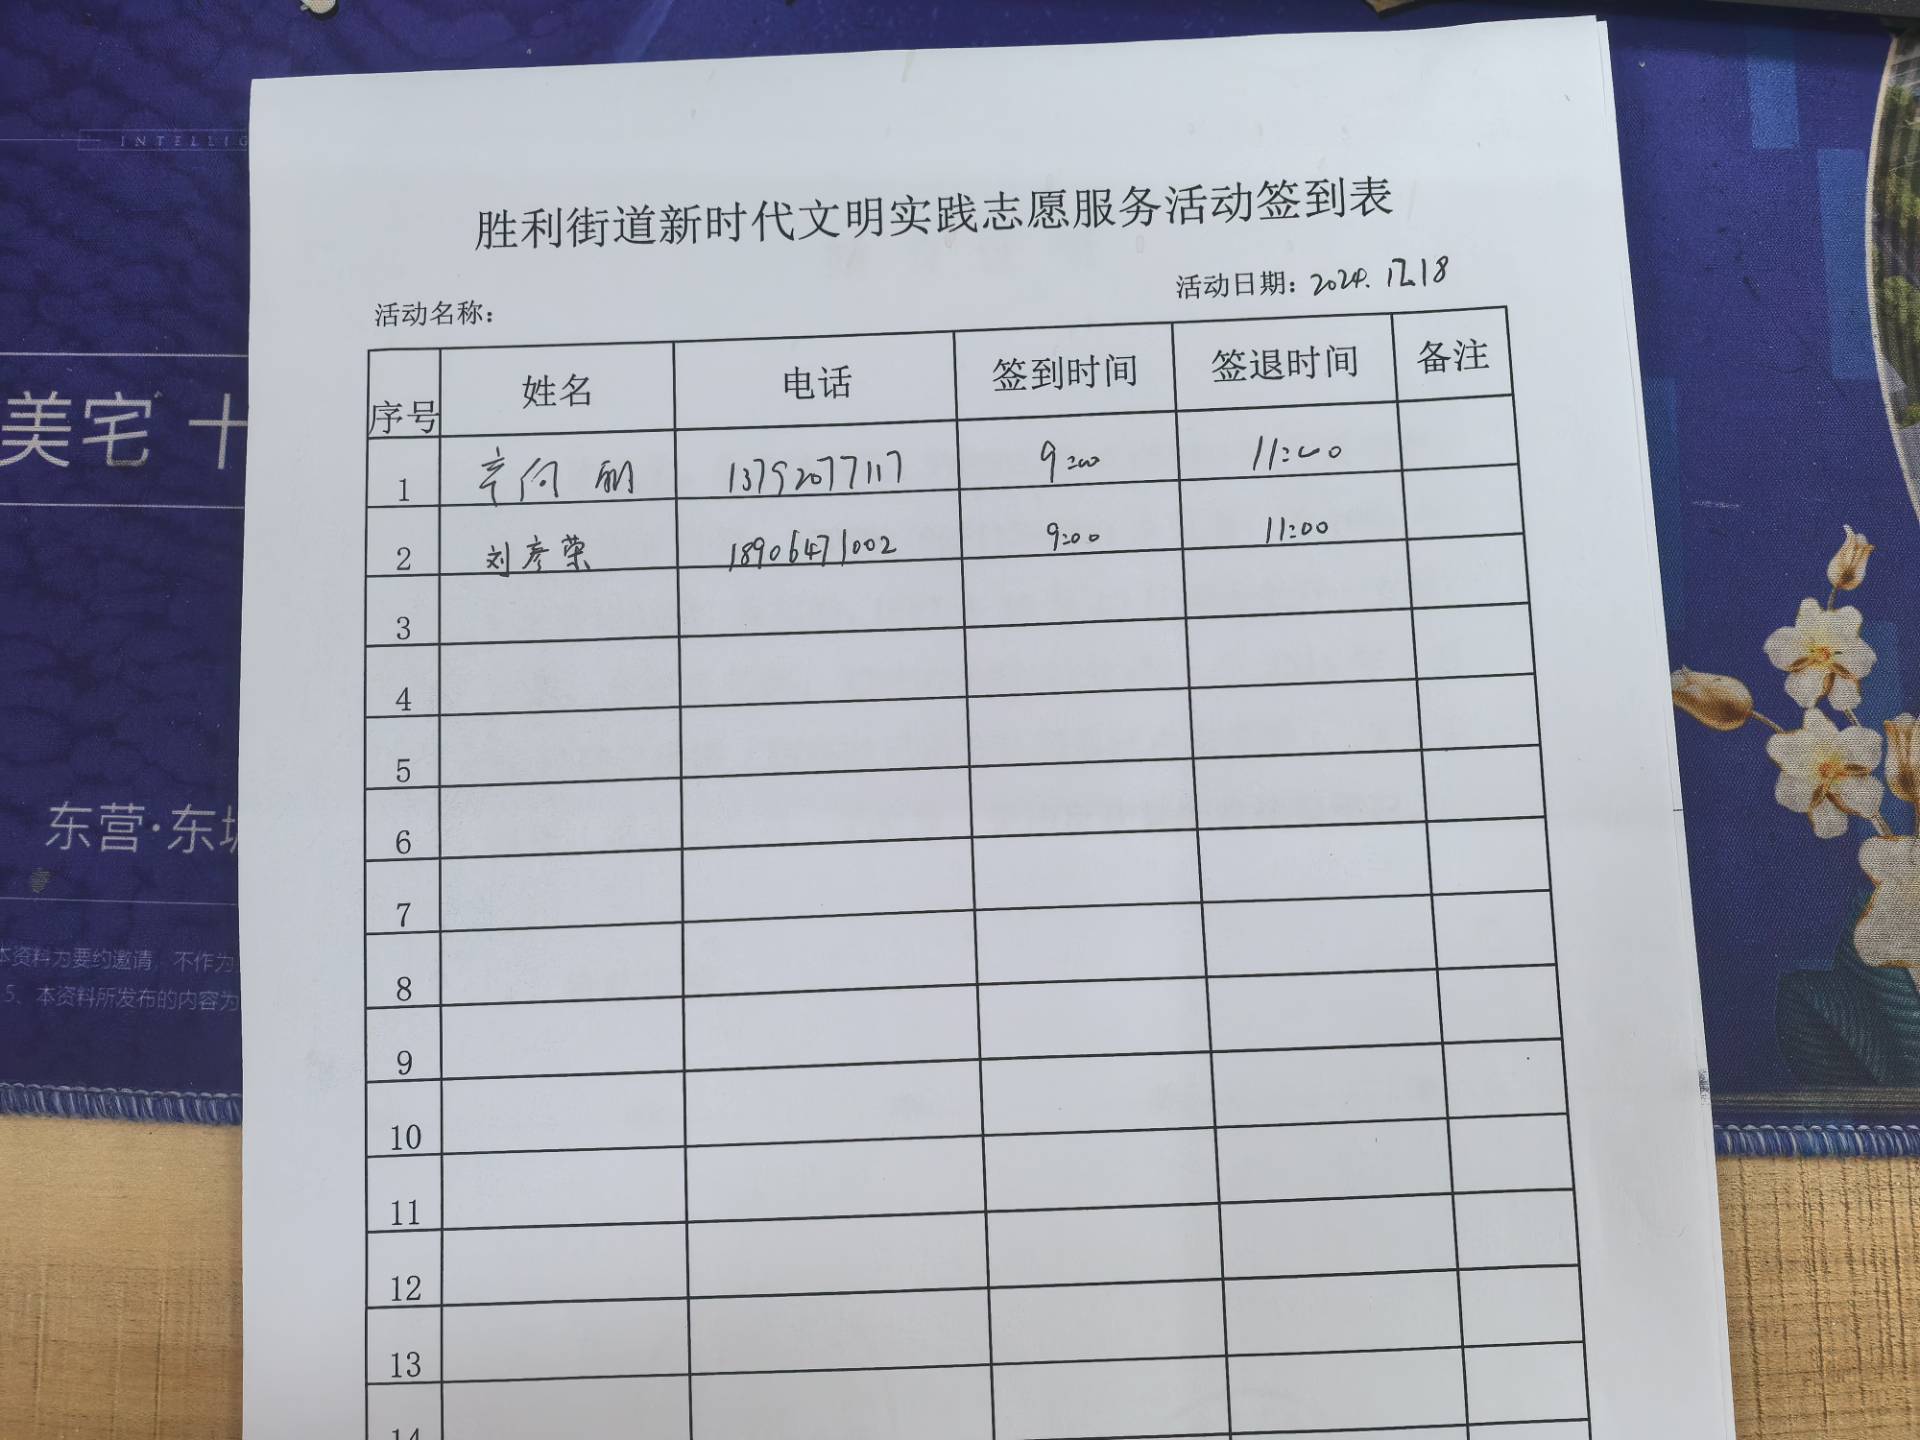 INTELLIG
美宅 十
东营·东城
本资料为要约邀请，不作为
5、本资料所发布的内容为
胜利街道新时代文明实践志愿服务活动签到表
活动名称： 活动日期：2024.12.18
序号 姓名 电话 签到时间 签退时间 备注
1 辛向 13792077117 9:00 11:00
2 刘彦荣 18906471002 9:00 11:00
3
4
5
6
7
8
9
10
11
12
13
14